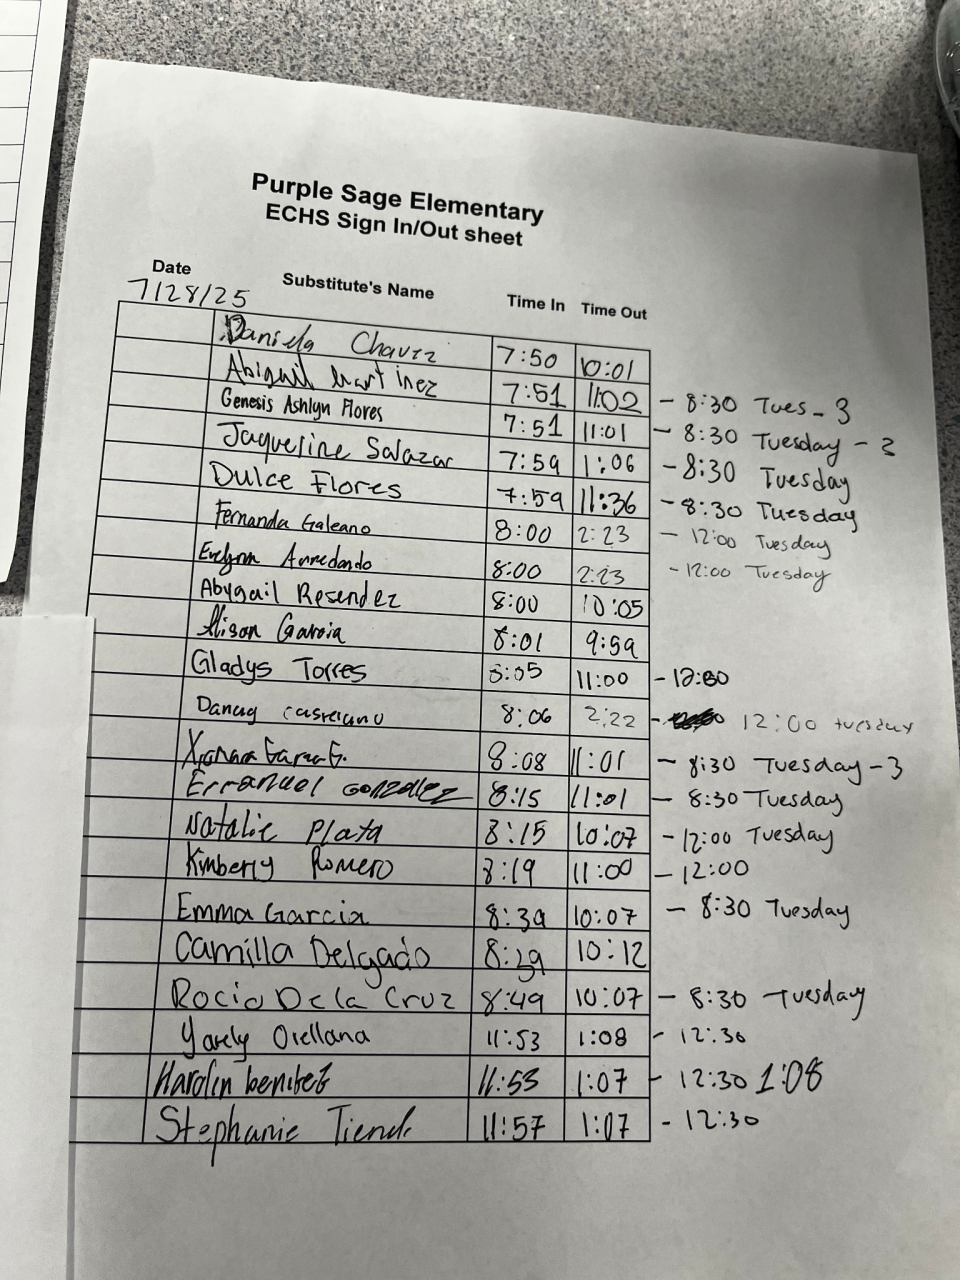 Purple Sage Elementary
ECHS Sign In/Out sheet
Date Substitute's Name Time In Time Out
7/28/25
Daniela Chavez 7:50 10:01
Abigail Martinez 7:51 11:02 - 8:30 Tues - 3
Genesis Ashlyn Flores 7:51 11:01 - 8:30 Tuesday - 3
Jaqueline Salazar 7:59 1:06 - 8:30 Tuesday
Dulce Flores 7:59 11:36 - 8:30 Tuesday
Fernanda Galeano 8:00 2:23 - 12:00 Tuesday
Evelynn Arredondo 8:00 2:23 - 12:00 Tuesday
Abygail Resendez 8:00 10:05
Alison Garcia 8:01 9:59
Gladys Torres 8:05 11:00 - 12:00
Danay Castellano 8:06 2:22 - 12:00 tuesday
Garcia G. 8:08 11:01 - 8:30 Tuesday - 3
Emanuel Gonzalez 8:15 11:01 - 8:30 Tuesday
Natalie Plata 8:15 10:07 - 12:00 Tuesday
Kimberly Romero 8:19 11:00 - 12:00
Emma Garcia 8:39 10:07 - 8:30 Tuesday
Camilla Delgado 8:39 10:12
Rocio De la Cruz 8:49 10:07 - 8:30 Tuesday
Yarely Orellana 11:53 1:08 - 12:30
Harolin benitez 11:53 1:07 - 12:30 1:08
Stephanie 11:57 1:07 - 12:30